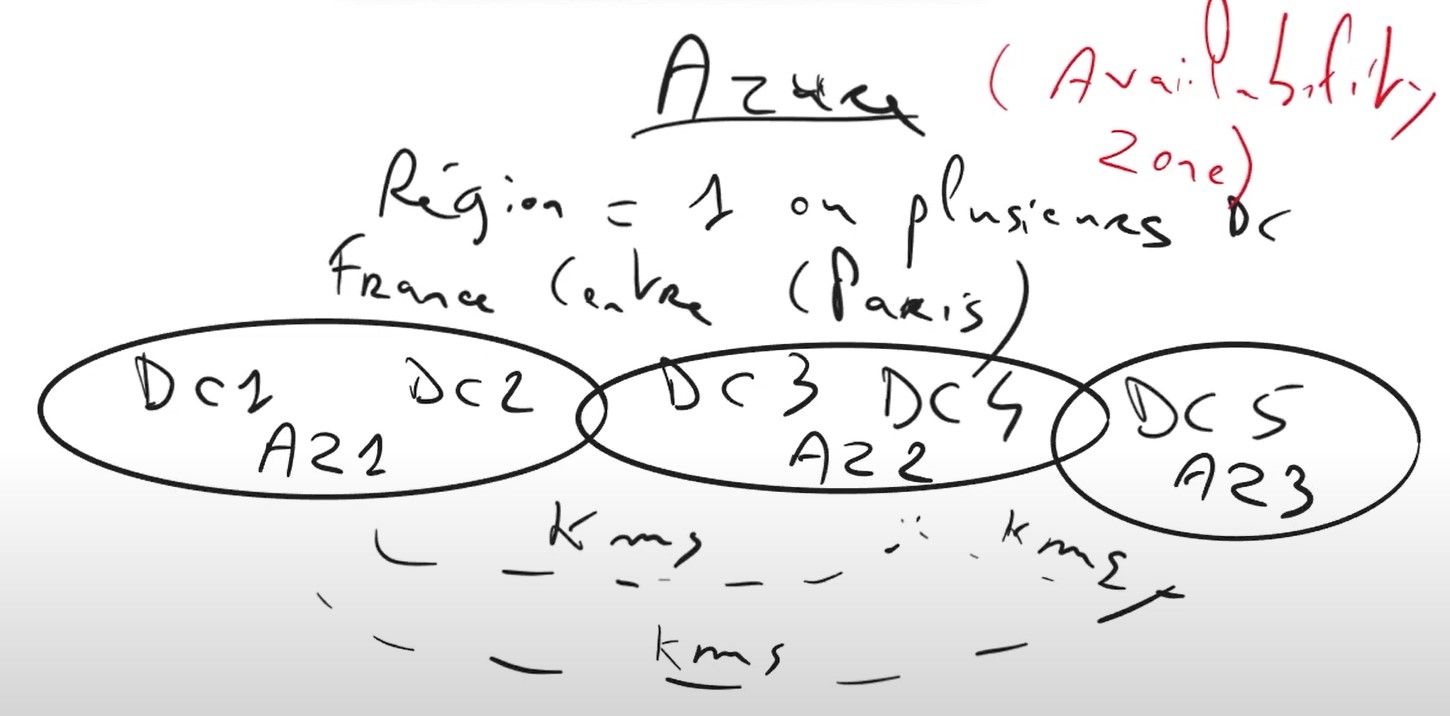 Azure (Availability
Zone)
Région = 1 ou plusieurs DC
France Centre (Paris)
DC1 DC2 DC3 DC4 DC5
AZ1 AZ2 AZ3
Kms kms
kms